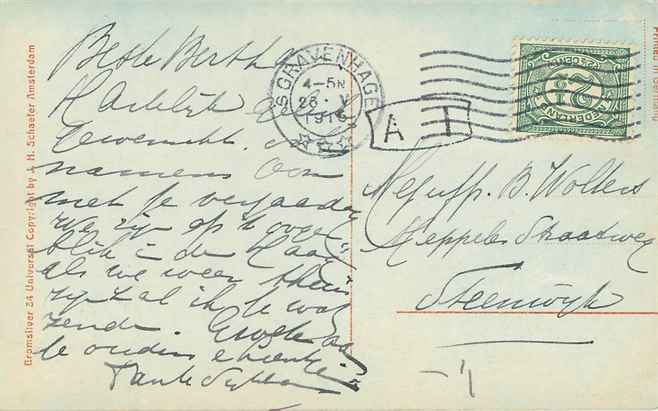 Beste Bertha
Hartelijk
gewenscht
namens Oom
met je verjaardag
we zijn op 't oogen
blik in den Haag
als we weer thuis
zijn zal ik je wat
zenden. Groeten aan
je ouders
Tante
'S GRAVENHAGE
4-5N
26 V
1916
A I
NEDERLAND
2½
Mejuffr. B. Wolters
Meppeler Straatweg
Steenwijk
Bromsilver 34 Universal Copyright by J. H. Schaefer Amsterdam
Printed in Germany